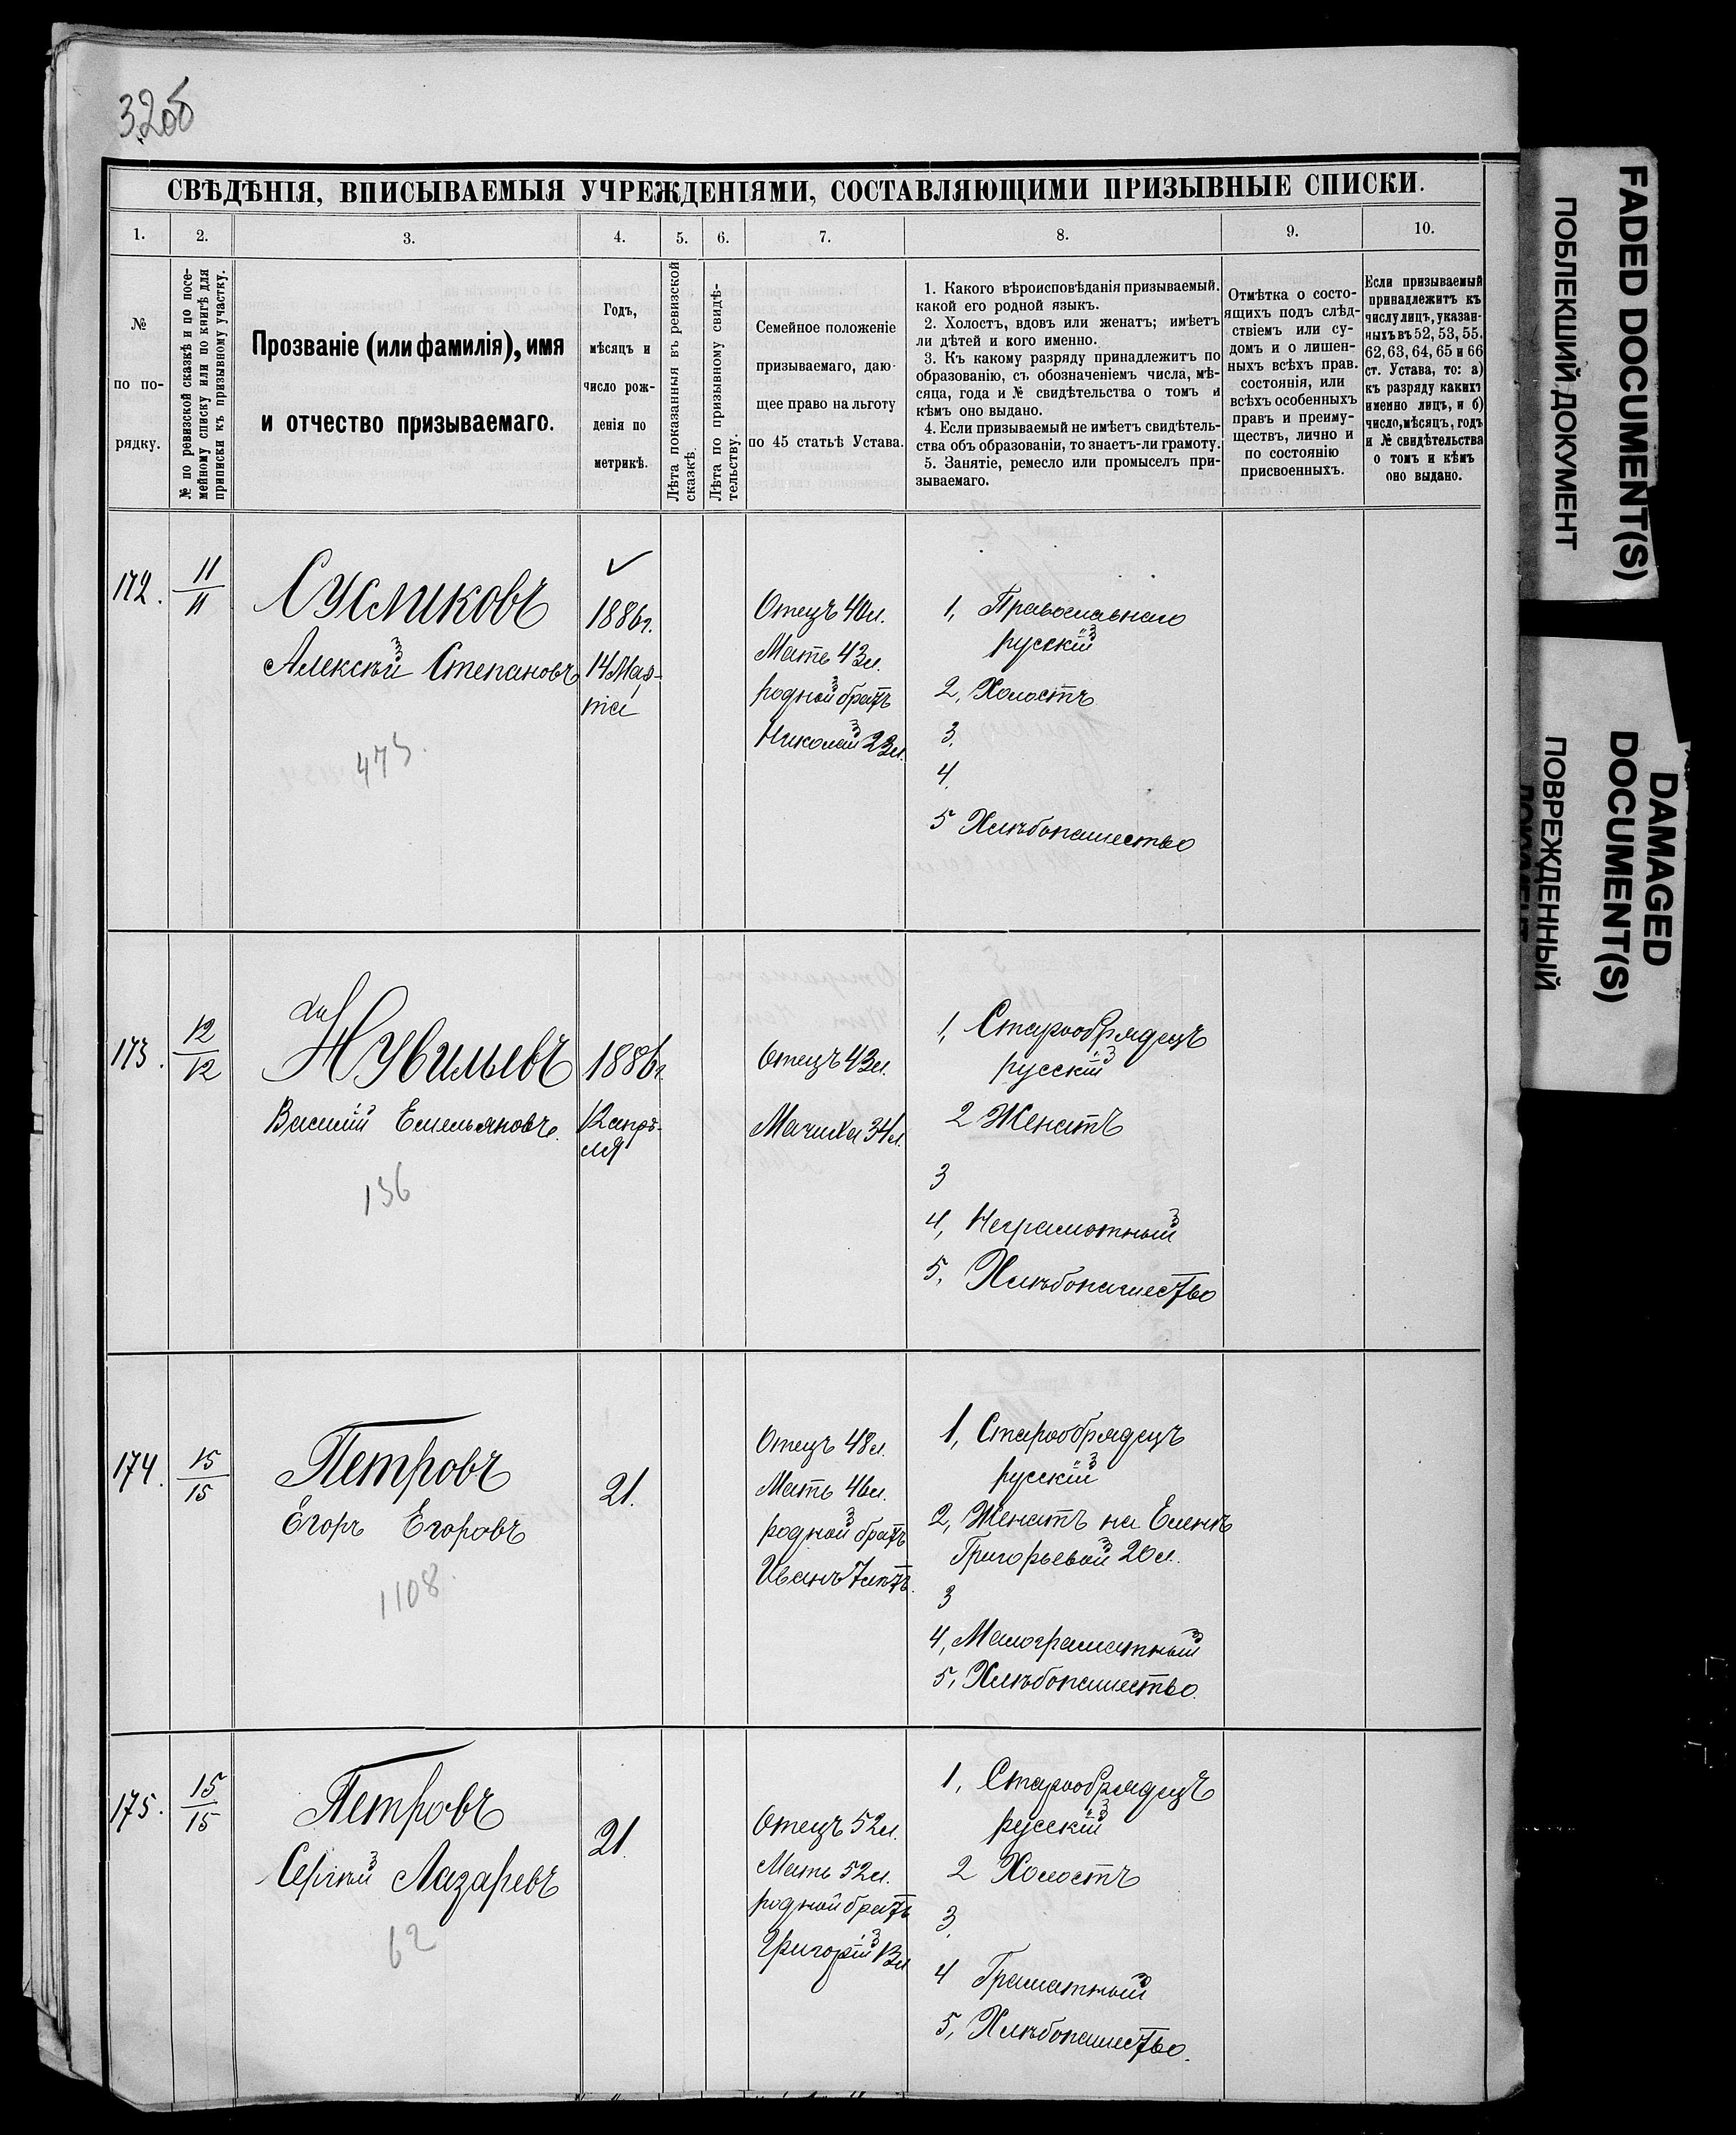 32об
СВѢДѢНІЯ, ВПИСЫВАЕМЫЯ УЧРЕЖДЕНІЯМИ, СОСТАВЛЯЮЩИМИ ПРИЗЫВНЫЕ СПИСКИ.
1.
2.
3.
4.
5.
6.
7.
8.
9.
10.
№
по по-
рядку.
№ по ревизской сказкѣ и по посе-
мейному списку или по книгѣ для
приписки къ призывному участку.
Прозваніе (или фамилія), имя
и отчество призываемаго.
Годъ,
мѣсяцъ и
число рож-
денія по
метрикѣ.
Лѣта показанныя въ ревизской
сказкѣ.
Лѣта по призывному свидѣ-
тельству.
Семейное положеніе
призываемаго, даю-
щее право на льготу
по 45 статьѣ Устава.
1. Какого вѣроисповѣданія призываемый.
какой его родной языкъ.
2. Холостъ, вдовъ или женатъ; имѣетъ
ли дѣтей и кого именно.
3. Къ какому разряду принадлежитъ по
образованію, съ обозначеніемъ числа, мѣ-
сяца, года и № свидѣтельства о томъ и
кѣмъ оно выдано.
4. Если призываемый не имѣетъ свидѣтель-
ства объ образованіи, то знаетъ-ли грамоту.
5. Занятіе, ремесло или промыселъ при-
зываемаго.
Отмѣтка о состо-
ящихъ подъ слѣд-
ствіемъ или су-
домъ и о лишен-
ныхъ всѣхъ прав.
состоянія, или
всѣхъ особенныхъ
правъ и преиму-
ществъ, лично и
по состоянію
присвоенныхъ.
Если призываемый
принадлежитъ къ
числу лицъ, указан-
ныхъ въ 52, 53, 55.
62, 63, 64, 65 и 66
ст. Устава, то: а)
къ разряду какихъ
именно лицъ, и б)
число, мѣсяцъ, годъ
и № свидѣтельства
о томъ и кѣмъ
оно выдано.
172.
11
11
Сусликовъ
Алексѣй Степановъ
475.
✓
1886г.
14 Мар-
та
Отецъ 40л.
Мать 43л.
родной братъ
Николай 23л.
1, Православнаго
русскій
2, Холостъ
3.
4.
5 Хлѣбопашество
173.
12
12
Нувильевъ
Василій Емельяновъ.
136
1886г.
12 апрѣ-
ля
Отецъ 43л.
Мачиха 34л.
1, Старообрядецъ
русскій
2 Женатъ
3
4, Неграмотный
5, Хлѣбопашество
174.
15
15
Петровъ
Егоръ Егоровъ
1108.
21.
Отецъ 48л.
Мать 46л.
родной братъ
Иванъ 7 лѣтъ.
1, Старообрядецъ
русскій
2, Женатъ на Еленѣ
Григорьевой 20л.
3
4, Малограматный
5, Хлѣбопашество.
175.
15
15
Петровъ
Сергѣй Лазаревъ
62
21.
Отецъ 52л.
Мать 52л.
родной братъ
Григорій 13л
1, Старообрядецъ
русскій
2 Холостъ
3.
4 Граматный
5, Хлѣбопашество.
FADED DOCUMENT(S)
ПОБЛЕКШИЙ ДОКУМЕНТ
DAMAGED
DOCUMENT(S)
ПОВРЕЖДЕННЫЙ